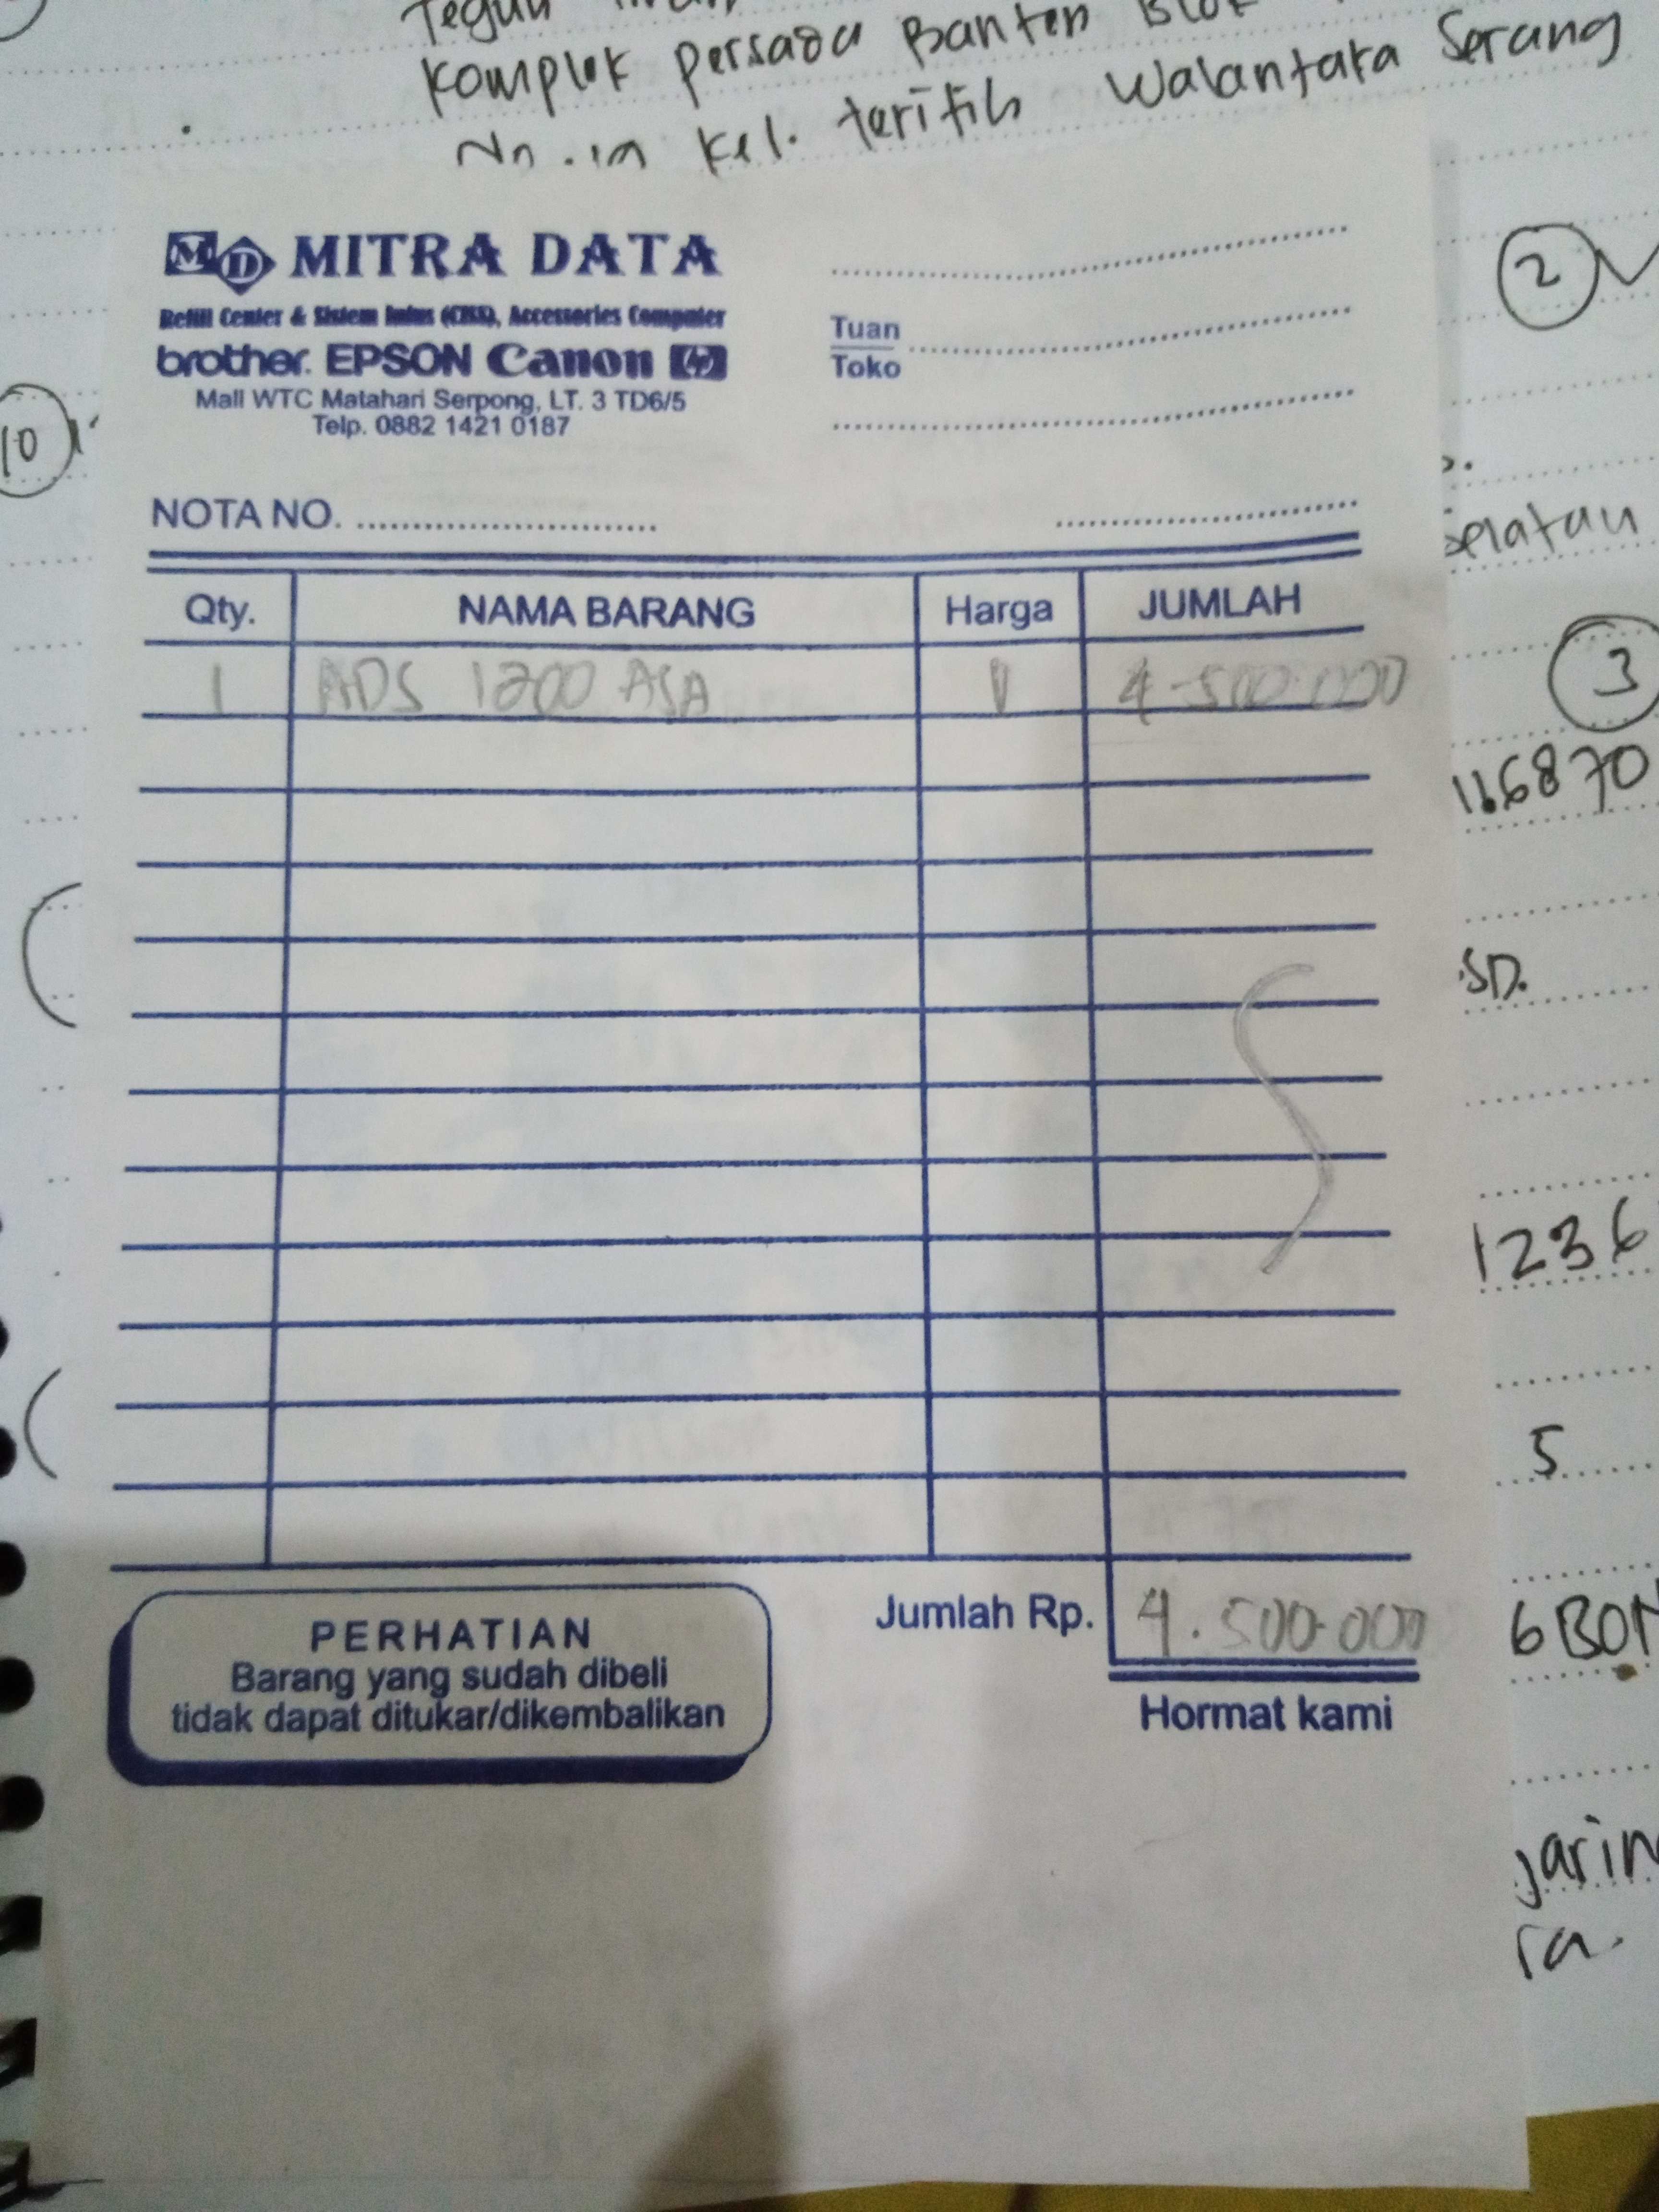 Komplek Persada Banten Blok
Kel. taritih Walantaka Serang
MD MITRA DATA
Refill Center & Sistem Infus (CISS), Accessories Computer
brother. EPSON Canon hp
Mall WTC Matahari Serpong, LT. 3 TD6/5
Telp. 0882 1421 0187
Tuan
Toko
NOTA NO.
Qty. NAMA BARANG Harga JUMLAH
1 ADS 1200 ASA 4.500.000
Jumlah Rp. 4.500.000
PERHATIAN
Barang yang sudah dibeli
tidak dapat ditukar/dikembalikan
Hormat kami
10
2
elatan
3
116870
SD.
1236
5
6 BON
jarin
ra.